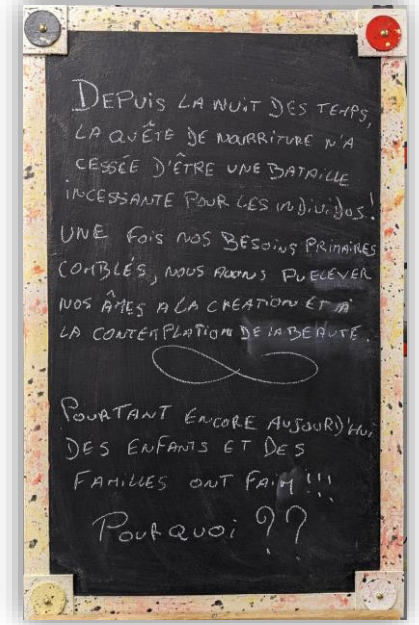 DEPUIS LA NUIT DES TEMPS,
LA QUÊTE DE NOURRITURE N'A
CESSÉE D'ÊTRE UNE BATAILLE
INCESSANTE POUR LES INDIVIDUS!
UNE FOIS NOS BESOINS PRIMAIRES
COMBLÉS, NOUS AVONS PU ELEVER
NOS ÂMES A LA CREATION ET À
LA CONTEMPLATION DE LA BEAUTÉ.
POURTANT ENCORE AUJOURD'HUI
DES ENFANTS ET DES
FAMILLES ONT FAIM !!!
POURQUOI ??